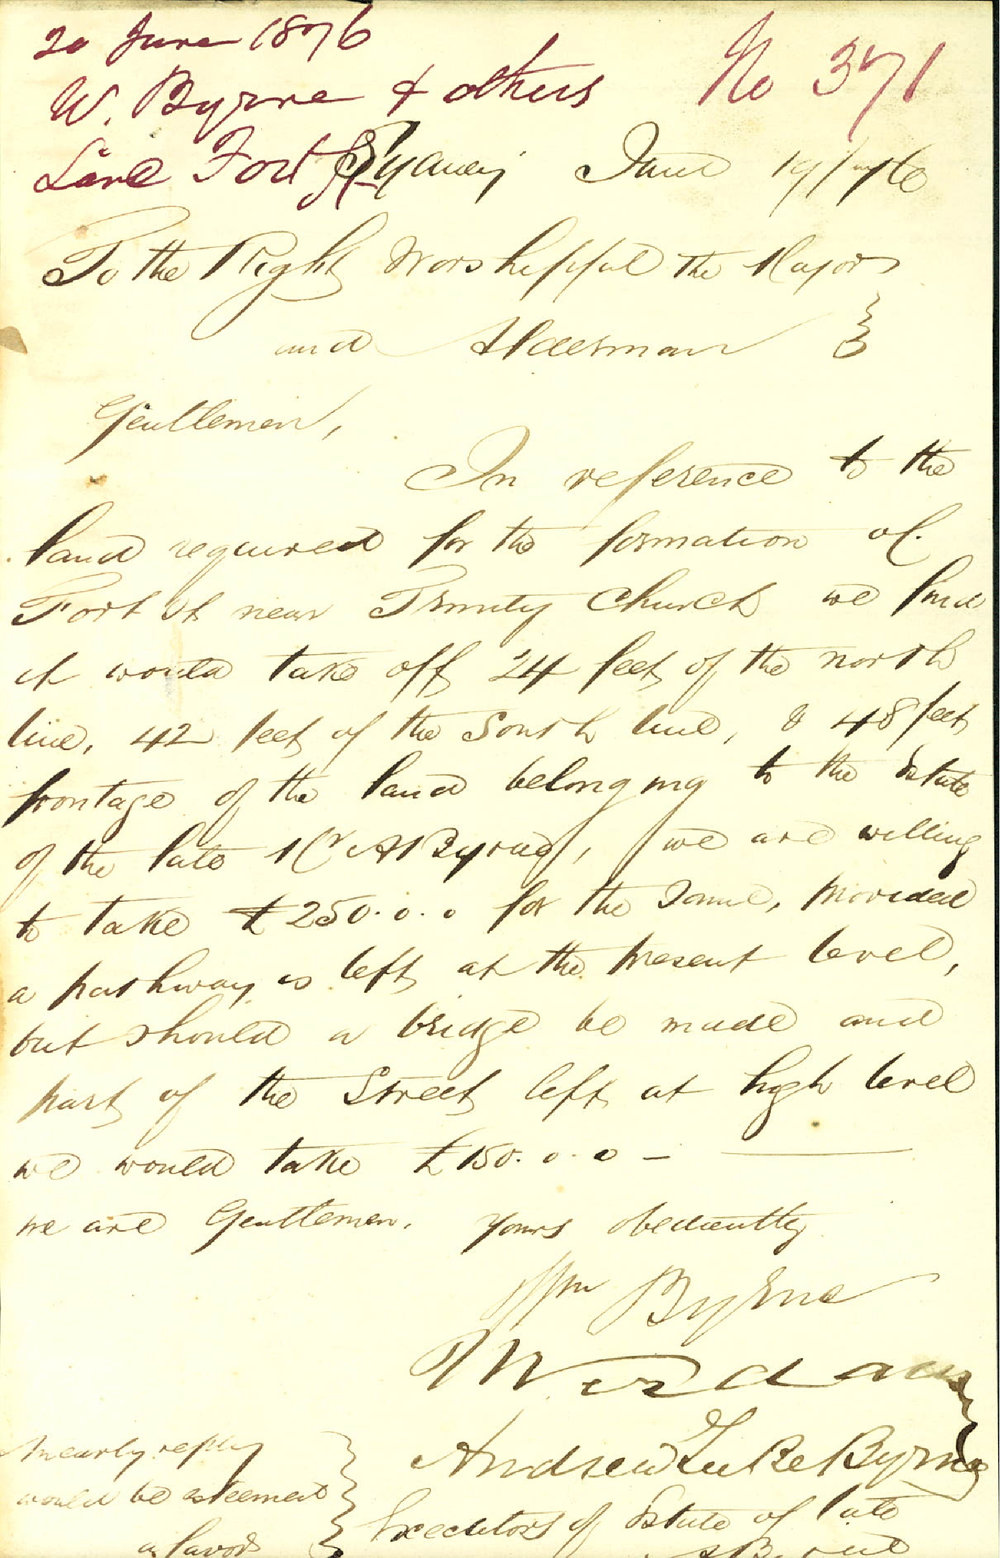 20 June 1876
W. Byrne & others No 371
Land Fort St
Sydney June 19/76
To the Right Worshipful the Mayor
and Alderman
Gentlemen,
In reference to the
land required for the formation of
Fort St near Trinity Church we find
it would take off 24 feet of the north
line, 42 feet of the South line, & 48 feet
frontage of the land belonging to the Estate
of the late Mr A Byrne, we are willing
to take £250.0.0 for the same, provided
a pathway is left at the present level,
but should a bridge be made and
part of the Street left at high level
we would take £150.0.0 —
we are Gentlemen. Yours obediently
Wm Byrne
Andrew Luke Byrne
An early reply
would be esteemed
a favor
Executors of Estate of late
A Byrne